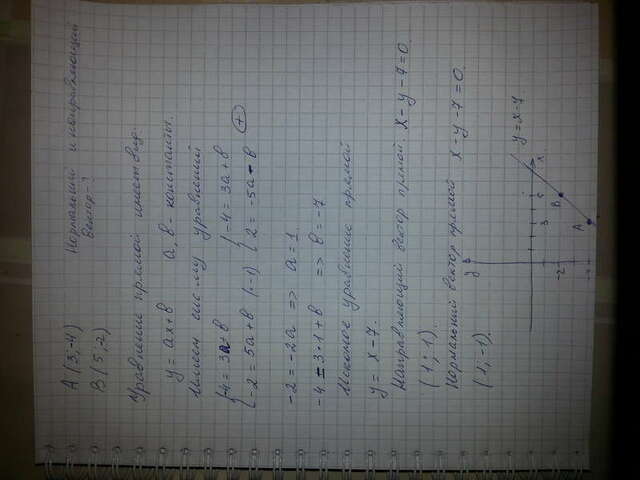 А (3; -4) Нормальный и направляющий
В (5; -2) вектор - ?
Уравнение прямой имеет вид
y = ax + b a, b - константы.
Решаем систему уравнений
{ -4 = 3a + b { -4 = 3a + b
{ -2 = 5a + b (-1) { 2 = -5a - b (+)
-2 = -2a => a = 1.
-4 = 3·1 + b => b = -7
Искомое уравнение прямой
y = x - 7.
Направляющий вектор прямой: x - y - 7 = 0.
(1; 1).
Нормальный вектор прямой x - y - 7 = 0.
(1, -1).
y
y = x - 7
x
3 5
-2 B
-4 A